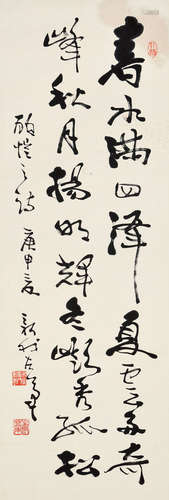 春水滿四澤夏雲多奇
峰秋月揚明輝冬嶺秀孤松
顧愷之詩 庚申夏 新我左筆